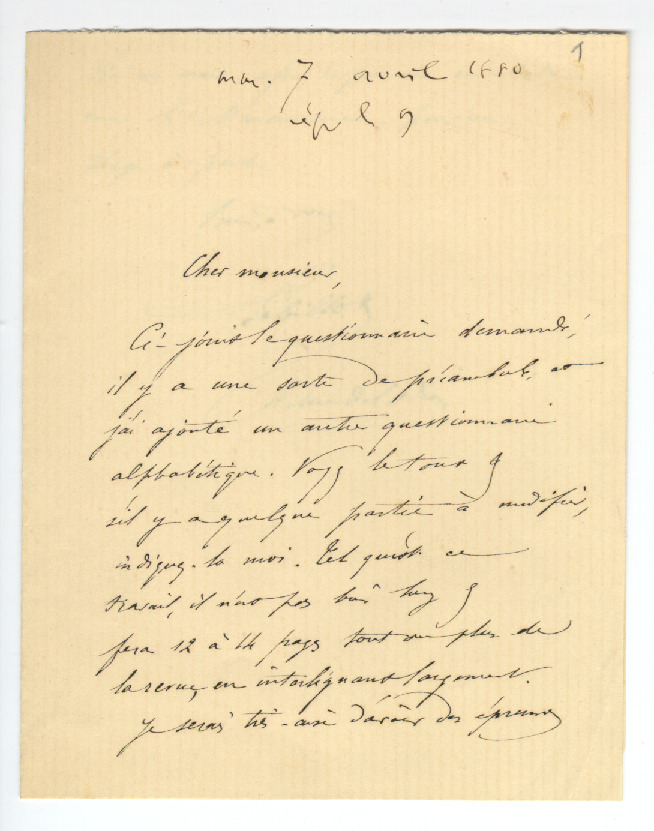 1
mer. 7 avril 1880
rép le 9
Cher monsieur,
Ci-joint le questionnaire demandé,
il y a une sorte de préambule, et
j'ai ajouté un autre questionnaire
alphabétique. Voyez le tout &
s'il y a quelque partie à modifier,
indiquez-la moi. Tel qu'est ce
travail, il n'est pas bien long &
fera 12 à 14 pages tout au plus de
la revue, en interlignant largement.
je serais très-aise d'avoir des épreuves